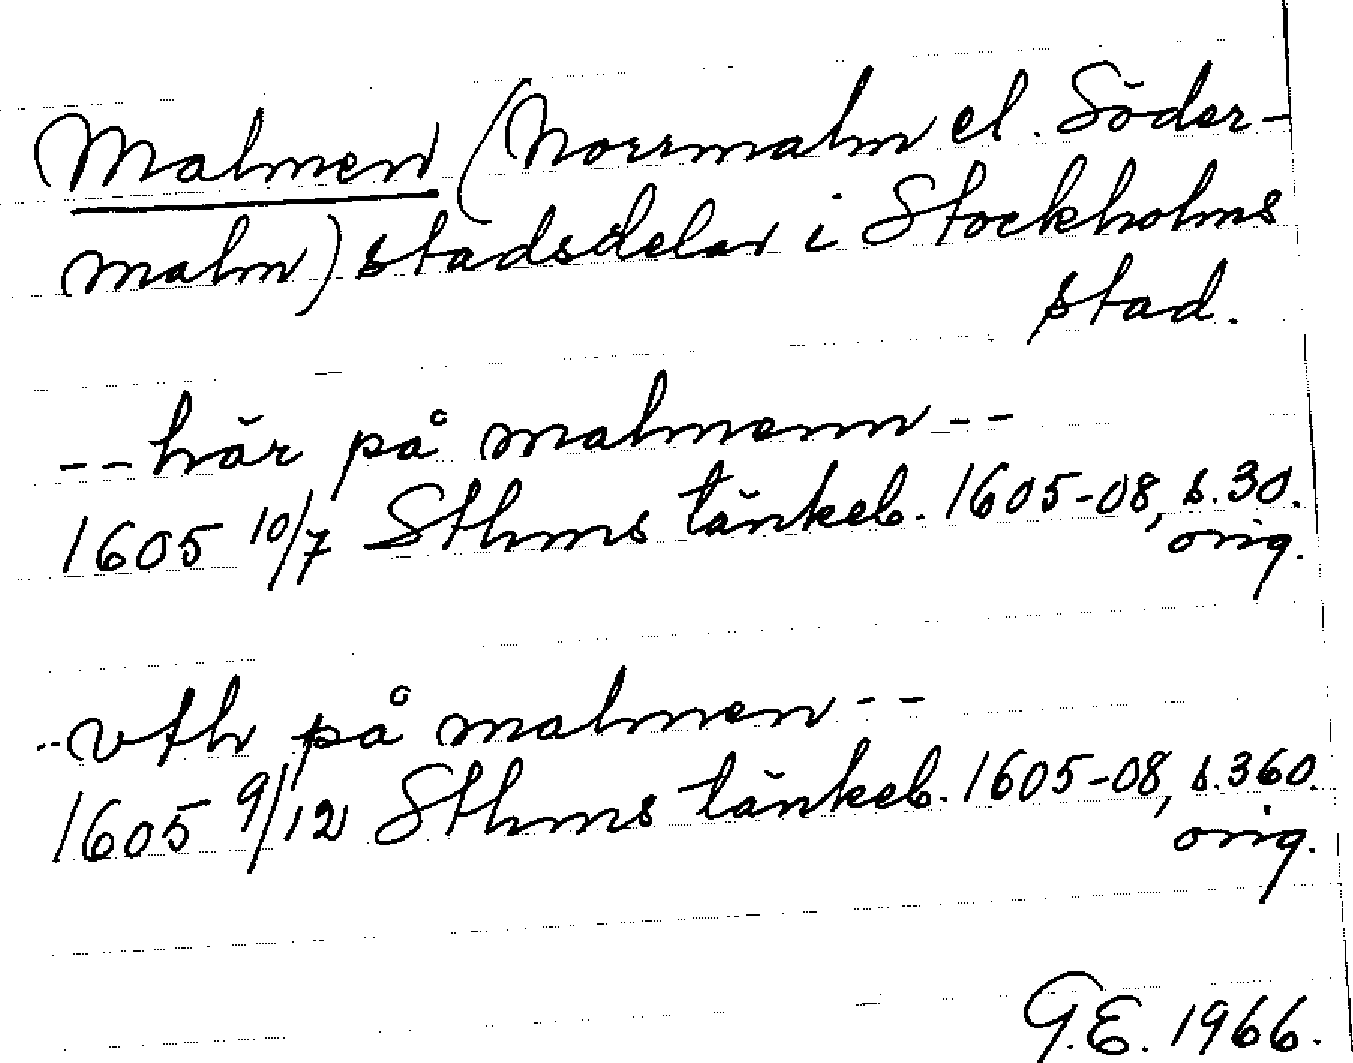 Malmen (Norrmalm el. Söder-
malm) stadsdelar i Stockholms
stad.
--här på malmenn--
1605 10/7 Sthms tänkeb. 1605-08, s.30.
orig.
--vth på malmen--
1605 9/12 Sthms tänkeb. 1605-08, s.360.
orig.
G.E. 1966.